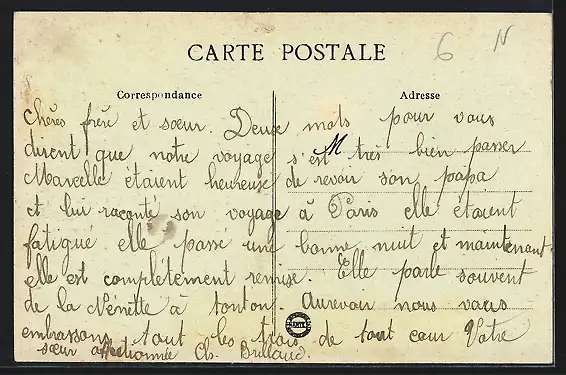 6 N
CARTE POSTALE
Correspondance Adresse
Chères frère et sœur. Deux mots pour vous
dirent que notre voyage s'est très bien passer
M
Marcelle étaient heureuse de revoir son papa
et lui raconté son voyage à Paris elle étaient
fatigué elle passé une bonne nuit et maintenant
elle est complètement remise. Elle parle souvent
de la Nénette à tonton. Aurevoir nous vous
embrassons tout les trois de tout cœur Votre
sœur affectionnée Ch.